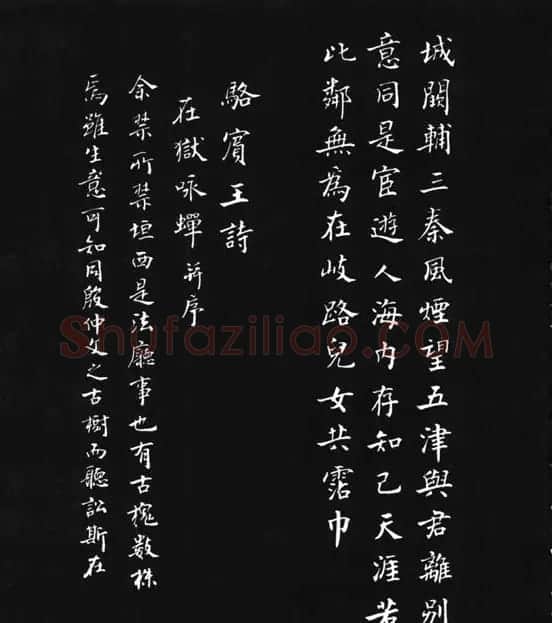 城闕輔三秦風煙望五津與君離別
意同是宦遊人海內存知己天涯若
比鄰無為在歧路兒女共霑巾
駱賓王詩
在獄咏蟬并序
余禁所禁垣西是法廳事也有古槐數株
焉雖生意可知同殷仲文之古樹而聽訟斯在
Shufaziliao.COM